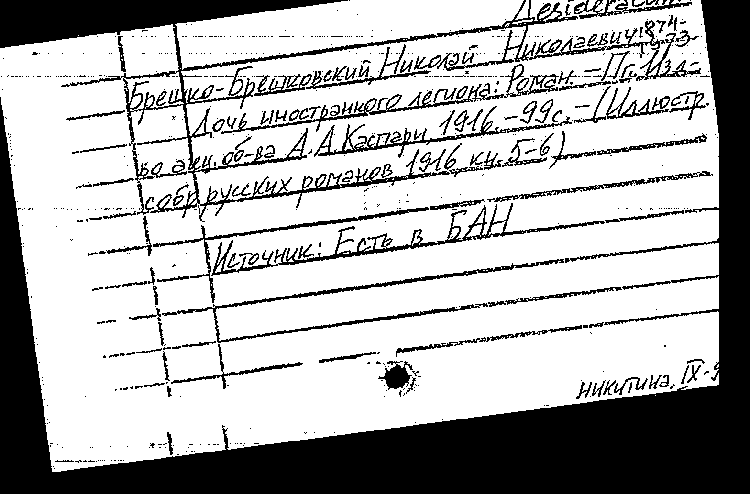 Desideratum
Брешко-Брешковский, Николай Николаевич, 1874-
1943.
Дочь иностранного легиона: Роман. - Пг.: Изд-
во акц. об-ва А.А. Каспари, 1916. - 99 с. - (Иллюстр.
собр. русских романов, 1916, кн. 5-6)
Источник: Есть в БАН
Никитина, IX-9